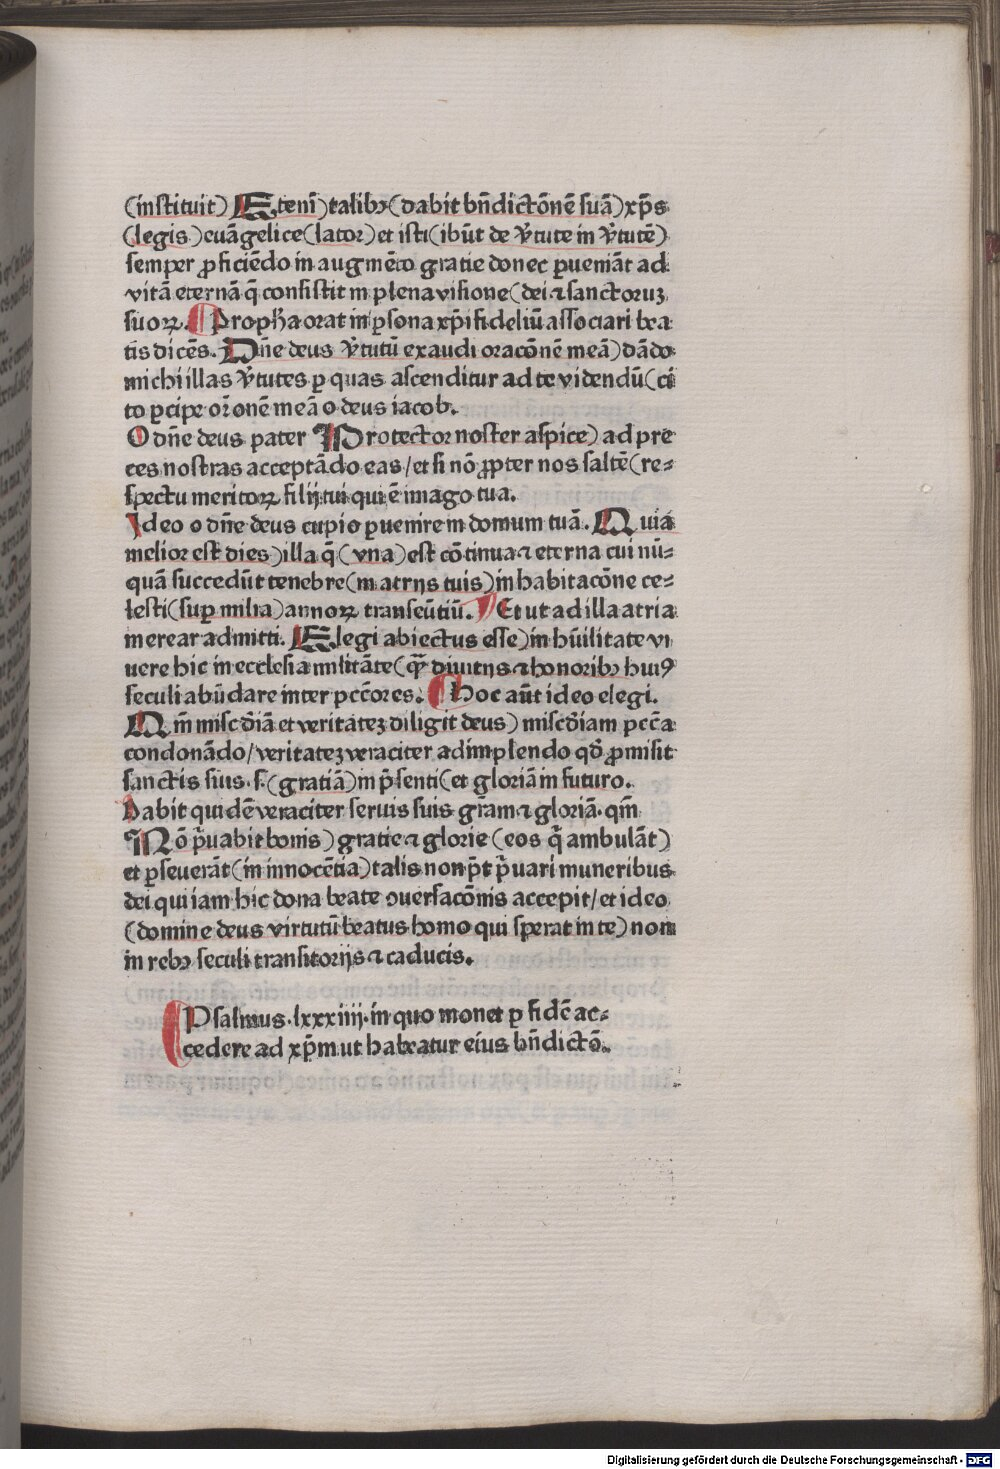 (instituit) Eteni᷒) talibꝫ (dabit bn̄dictōnē suā) xp̄s
(legis) euāgelice (lator) et isti (ibūt de v̄tute in v̄tutē)
semper ꝓficiēdo in augmēto gratie donec ꝑueniāt ad
vitā eternā q̄ consistit in plena visione (dei ⁊ sanctoruꝫ
suoꝝ. Prophā orat in ꝑsona xp̄i fideliū associari bea
tis dicēs. Dn̄e deus v̄tutū exaudi oracōnē meā) dādo
michi illas v̄tutes ꝑ quas ascenditur ad te videndū (ci
to ꝑcipe or̄onē meā o deus iacob.
O dn̄e deus pater Protector noster aspice) ad pre
ces nostras acceptādo eas / et si nō ꝓpter nos saltē (re⸗
spectu meritoꝝ filij tui qui ē imago tua.
Ideo o dn̄e deus cupio ꝑuenire in domum tuā. Quia
melior est dies) illa q̄ (vna) est cōtinua ⁊ eterna cui nū⸗
quā succedūt tenebre (in atrijs tuis) in habitacōne ce⸗
lesti (suꝑ milia) annoꝝ transeūtiū. Et ut ad illa atria
merear admitti. Elegi abiectus esse) in hūilitate vi
uere hic in ecclesia militāte (q̄ꝫ diuitijs ⁊ honoribꝫ huiꝰ
seculi abūdare inter pctōres. Hoc aūt ideo elegi.
Qm̄ mis̄cdiā et veritateꝫ diligit deus) mis̄cdiam pctā
condonādo / veritateꝫ veraciter adimplendo qd̄ ꝓmisit
sanctis suis .s. (gratiā) in p̄senti (et gloriā in futuro.
Dabit quidē veraciter seruis suis gr̄am ⁊ gloriā. qm̄
Nō p̄uabit bonis) gratie ⁊ glorie (eos q̄ ambulāt)
et ꝑseuerāt (in innocētia) talis non pn̄t p̄uari muneribus
dei qui iam hic dona beate ꝯuersacōnis accepit / et ideo
(domine deus virtutū beatus homo qui sperat in te) non
in rebꝫ seculi transitorijs ⁊ caducis.
Psalmus .lxxxiiij. in quo monet ꝑ fidē ac⸗
cedere ad xp̄m ut habeatur eius bn̄dictō.
Digitalisierung gefördert durch die Deutsche Forschungsgemeinschaft - DFG